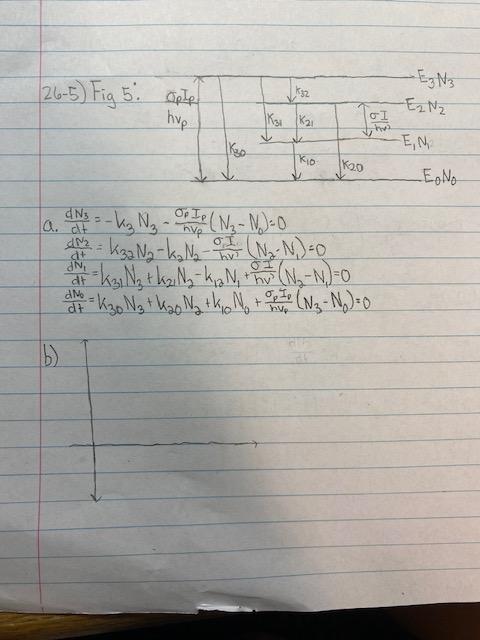 26-5) Fig 5:
E₃N₃
σₚIₚ
hνₚ
k₃₂
E₂N₂
k₃₁ k₂₁
σI
hν
E₁N₁
k₃₀ k₁₀ k₂₀
E₀N₀
a. dN₃/dt = -k₃N₃ - σₚIₚ/hνₚ (N₃-N₀)=0
dN₂/dt = k₃₂N₂ - k₂N₂ - σI/hν (N₂-N₁)=0
dN₁/dt = k₃₁N₃ + k₂₁N₂ - k₁₂N₁ + σI/hν (N₂-N₁)=0
dN₀/dt = k₃₀N₃ + k₂₀N₂ + k₁₀N₀ + σₚIₚ/hνₚ (N₃-N₀)=0
b)